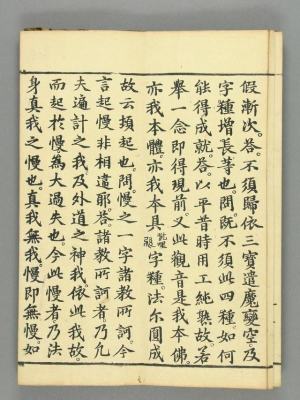 假漸次。答。不須歸依三寶遣魔變空。及
字種增長等也。問。既不須此四種。如何
能得成就。答。以平昔時用工純熟。故若
舉一念即得現前。又此觀音是我本佛。
亦我本體。亦我本具字種。法尔圓成
故云頓起也。問。慢之一字諸教所訶。今
言起慢非相違耶。答。諸教所訶者。乃凡
夫遍計之我。及外道之神我。依此我故。
而起於慢。為大過失也。今此慢者乃法
身真我之慢也。真我無我。慢即無慢。如